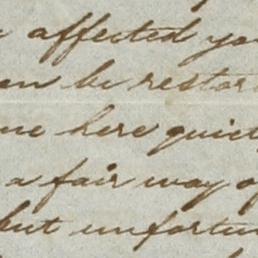 affected yo
en be restor
me here quiet
a fair way of
but unfortun